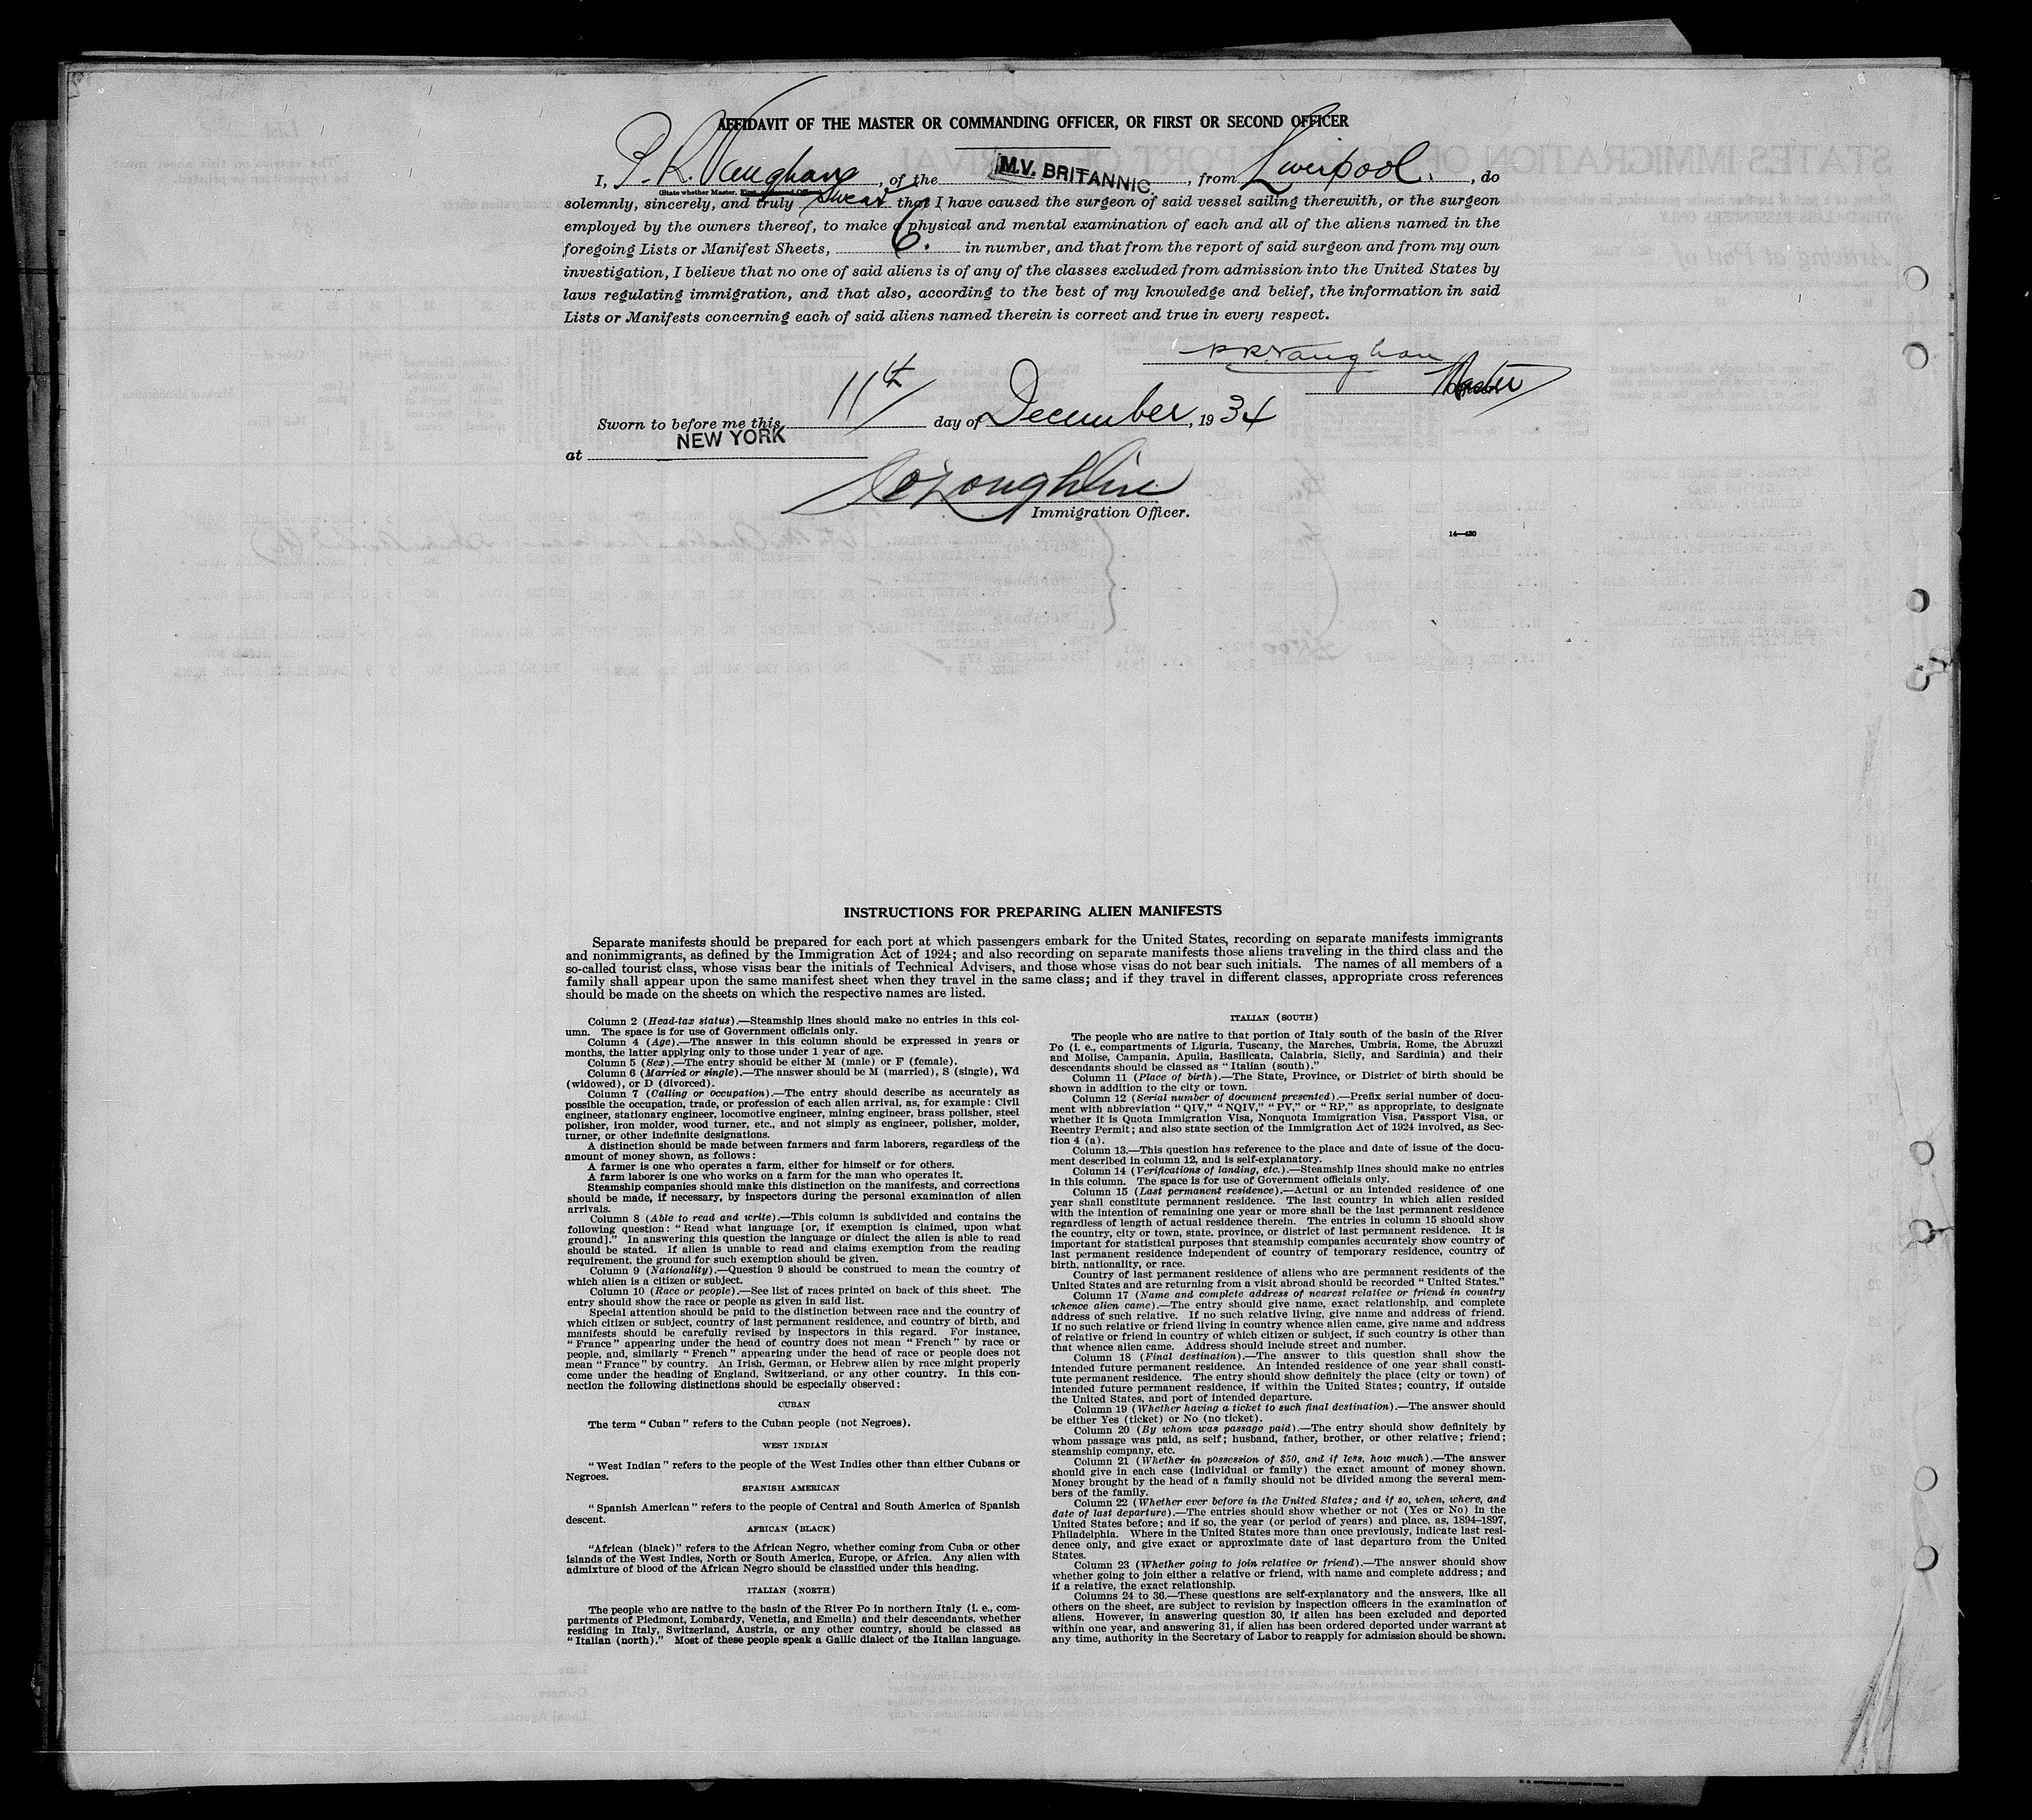 AFFIDAVIT OF THE MASTER OR COMMANDING OFFICER, OR FIRST OR SECOND OFFICER
I, P. R. Vaughan, of the M.V. BRITANNIC., from Liverpool., do
(State whether Master, First, or Second Officer)
solemnly, sincerely, and truly swear that I have caused the surgeon of said vessel sailing therewith, or the surgeon
employed by the owners thereof, to make a physical and mental examination of each and all of the aliens named in the
foregoing Lists or Manifest Sheets, 6. in number, and that from the report of said surgeon and from my own
investigation, I believe that no one of said aliens is of any of the classes excluded from admission into the United States by
laws regulating immigration, and that also, according to the best of my knowledge and belief, the information in said
Lists or Manifests concerning each of said aliens named therein is correct and true in every respect.
P R Vaughan
Master
Sworn to before me this 11th day of December, 1934
at NEW YORK
O'Loughlin
Immigration Officer.
14—430
INSTRUCTIONS FOR PREPARING ALIEN MANIFESTS
Separate manifests should be prepared for each port at which passengers embark for the United States, recording on separate manifests immigrants
and nonimmigrants, as defined by the Immigration Act of 1924; and also recording on separate manifests those aliens traveling in the third class and the
so-called tourist class, whose visas bear the initials of Technical Advisers, and those whose visas do not bear such initials. The names of all members of a
family shall appear upon the same manifest sheet when they travel in the same class; and if they travel in different classes, appropriate cross references
should be made on the sheets on which the respective names are listed.
Column 2 (Head-tax status).—Steamship lines should make no entries in this col-
umn. The space is for use of Government officials only.
Column 4 (Age).—The answer in this column should be expressed in years or
months, the latter applying only to those under 1 year of age.
Column 5 (Sex).—The entry should be either M (male) or F (female).
Column 6 (Married or single).—The answer should be M (married), S (single), Wd
(widowed), or D (divorced).
Column 7 (Calling or occupation).—The entry should describe as accurately as
possible the occupation, trade, or profession of each alien arrival, as, for example: Civil
engineer, stationary engineer, locomotive engineer, mining engineer, brass polisher, steel
polisher, iron molder, wood turner, etc., and not simply as engineer, polisher, molder,
turner, or other indefinite designations.
A distinction should be made between farmers and farm laborers, regardless of the
amount of money shown, as follows:
A farmer is one who operates a farm, either for himself or for others.
A farm laborer is one who works on a farm for the man who operates it.
Steamship companies should make this distinction on the manifests, and corrections
should be made, if necessary, by inspectors during the personal examination of alien
arrivals.
Column 8 (Able to read and write).—This column is subdivided and contains the
following question: "Read what language [or, if exemption is claimed, upon what
ground]." In answering this question the language or dialect the alien is able to read
should be stated. If alien is unable to read and claims exemption from the reading
requirement, the ground for such exemption should be given.
Column 9 (Nationality).—Question 9 should be construed to mean the country of
which alien is a citizen or subject.
Column 10 (Race or people).—See list of races printed on back of this sheet. The
entry should show the race or people as given in said list.
Special attention should be paid to the distinction between race and the country of
which citizen or subject, country of last permanent residence, and country of birth, and
manifests should be carefully revised by inspectors in this regard. For instance,
"France" appearing under the head of country does not mean "French" by race or
people, and, similarly "French" appearing under the head of race or people does not
mean "France" by country. An Irish, German, or Hebrew alien by race might properly
come under the heading of England, Switzerland, or any other country. In this con-
nection the following distinctions should be especially observed:
CUBAN
The term "Cuban" refers to the Cuban people (not Negroes).
WEST INDIAN
"West Indian" refers to the people of the West Indies other than either Cubans or
Negroes.
SPANISH AMERICAN
"Spanish American" refers to the people of Central and South America of Spanish
descent.
AFRICAN (BLACK)
"African (black)" refers to the African Negro, whether coming from Cuba or other
islands of the West Indies, North or South America, Europe, or Africa. Any alien with
admixture of blood of the African Negro should be classified under this heading.
ITALIAN (NORTH)
The people who are native to the basin of the River Po in northern Italy (i. e., com-
partments of Piedmont, Lombardy, Venetia, and Emelia) and their descendants, whether
residing in Italy, Switzerland, Austria, or any other country, should be classed as
"Italian (north)." Most of these people speak a Gallic dialect of the Italian language.
ITALIAN (SOUTH)
The people who are native to that portion of Italy south of the basin of the River
Po (i. e., compartments of Liguria, Tuscany, the Marches, Umbria, Rome, the Abruzzi
and Molise, Campania, Apulia, Basilicata, Calabria, Sicily, and Sardinia) and their
descendants should be classed as "Italian (south)."
Column 11 (Place of birth).—The State, Province, or District of birth should be
shown in addition to the city or town.
Column 12 (Serial number of document presented).—Prefix serial number of docu-
ment with abbreviation "QIV," "NQIV," "PV," or "RP," as appropriate, to designate
whether it is Quota Immigration Visa, Nonquota Immigration Visa, Passport Visa, or
Reentry Permit; and also state section of the Immigration Act of 1924 involved, as Sec-
tion 4 (a).
Column 13.—This question has reference to the place and date of issue of the docu-
ment described in column 12, and is self-explanatory.
Column 14 (Verifications of landing, etc.).—Steamship lines should make no entries
in this column. The space is for use of Government officials only.
Column 15 (Last permanent residence).—Actual or an intended residence of one
year shall constitute permanent residence. The last country in which alien resided
with the intention of remaining one year or more shall be the last permanent residence
regardless of length of actual residence therein. The entries in column 15 should show
the country, city or town, state, province, or district of last permanent residence. It is
important for statistical purposes that steamship companies accurately show country of
last permanent residence independent of country of temporary residence, country of
birth, nationality, or race.
Country of last permanent residence of aliens who are permanent residents of the
United States and are returning from a visit abroad should be recorded "United States."
Column 17 (Name and complete address of nearest relative or friend in country
whence alien came).—The entry should give name, exact relationship, and complete
address of such relative. If no such relative living, give name and address of friend.
If no such relative or friend living in country whence alien came, give name and address
of relative or friend in country of which citizen or subject, if such country is other than
that whence alien came. Address should include street and number.
Column 18 (Final destination).—The answer to this question shall show the
intended future permanent residence. An intended residence of one year shall consti-
tute permanent residence. The entry should show definitely the place (city or town) of
intended future permanent residence, if within the United States; country, if outside
the United States, and port of intended departure.
Column 19 (Whether having a ticket to such final destination).—The answer should
be either Yes (ticket) or No (no ticket).
Column 20 (By whom was passage paid).—The entry should show definitely by
whom passage was paid, as self; husband, father, brother, or other relative; friend;
steamship company, etc.
Column 21 (Whether in possession of $50, and if less, how much).—The answer
should give in each case (individual or family) the exact amount of money shown.
Money brought by the head of a family should not be divided among the several mem-
bers of the family.
Column 22 (Whether ever before in the United States; and if so, when, where, and
date of last departure).—The entries should show whether or not (Yes or No) in the
United States before; and if so, the year (or period of years) and place, as, 1894–1897,
Philadelphia. Where in the United States more than once previously, indicate last resi-
dence only, and give exact or approximate date of last departure from the United
States.
Column 23 (Whether going to join relative or friend).—The answer should show
whether going to join either a relative or friend, with name and complete address; and
if a relative, the exact relationship.
Columns 24 to 36.—These questions are self-explanatory and the answers, like all
others on the sheet, are subject to revision by inspection officers in the examination of
aliens. However, in answering question 30, if alien has been excluded and deported
within one year, and answering 31, if alien has been ordered deported under warrant at
any time, authority in the Secretary of Labor to reapply for admission should be shown.